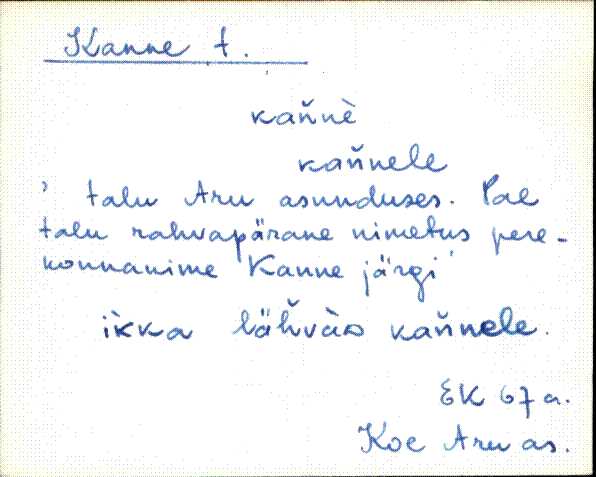 Kanne t.
kaňnè
kaňnele
' talu Aru asunduses. Pae
talu rahvapärane nimetus pere-
konnanime Kanne järgi'
ìkka lähvàɒ kaňnele.
EK 67 a.
Koe Aru as.